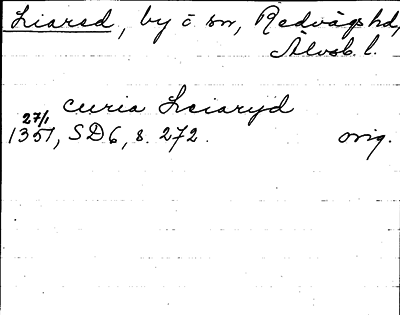 Liared, by o sn, Redvägs hd,
Älvsb. l.
curia Lciaryd
27/1
1351, SD 6, s. 272. orig.